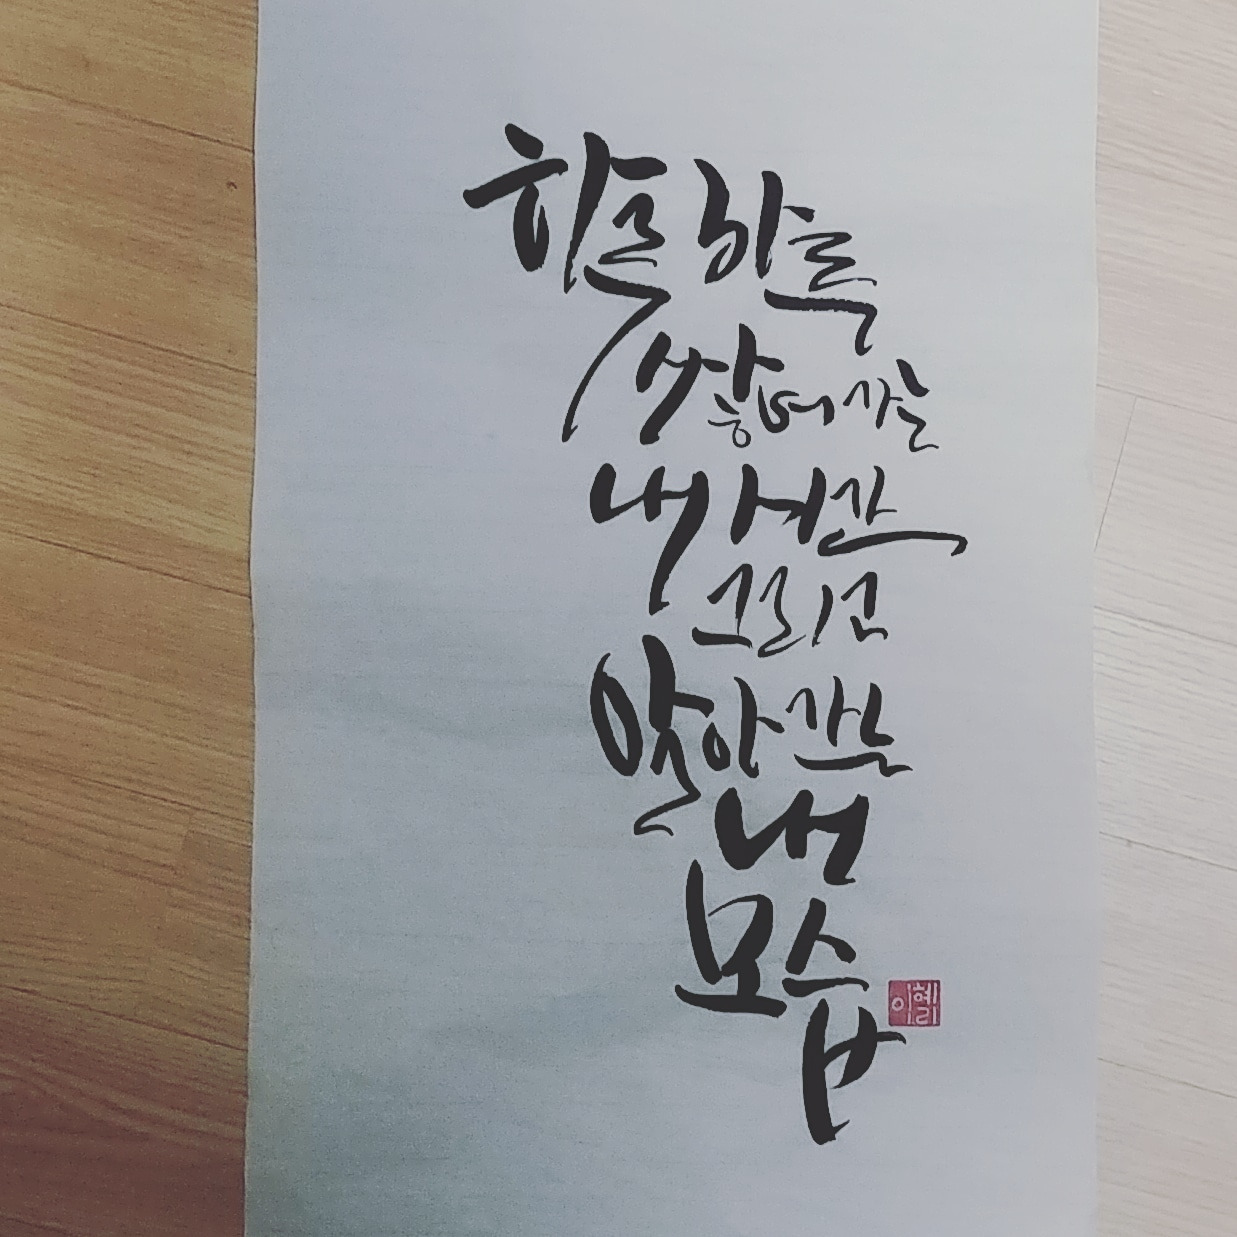 하루하루
쌓여가는
내 시간
그리고
알아가는
내
모습
이혜리